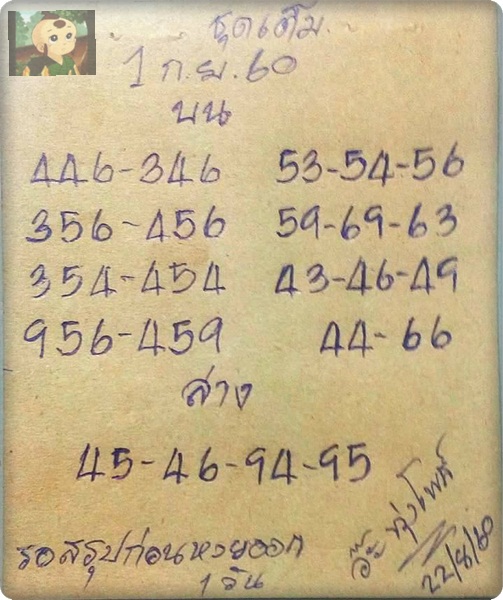 ชุดเต็ม.
1 ก.ย. 60
บน
446-346 53-54-56
356-456 59-69-63
354-454 43-46-49
956-459 44-66
ล่าง
45-46-94-95
รอสรุปก่อนหวยออก
1 วัน
22/8/60